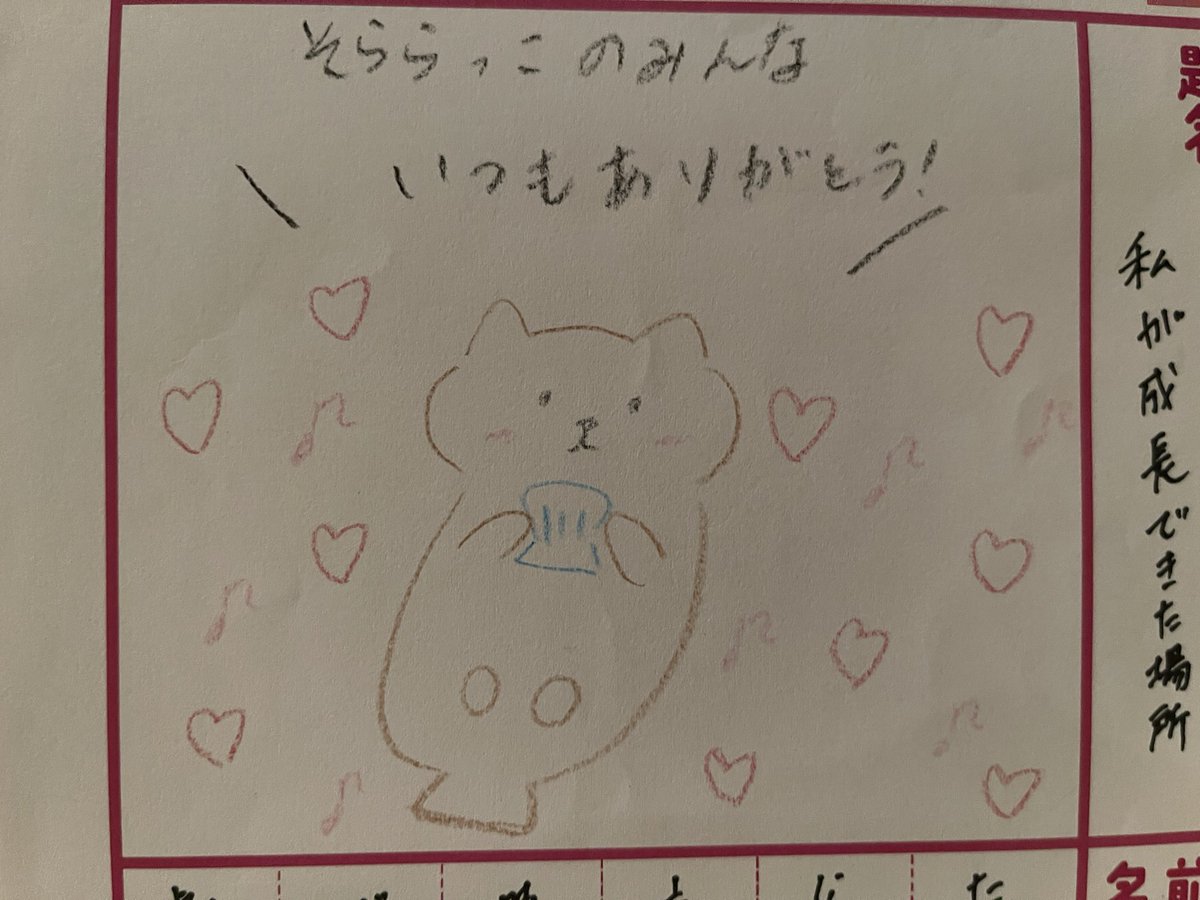 そららっこのみんな
いつもありがとう!
題名
私が成長できた場所
名前